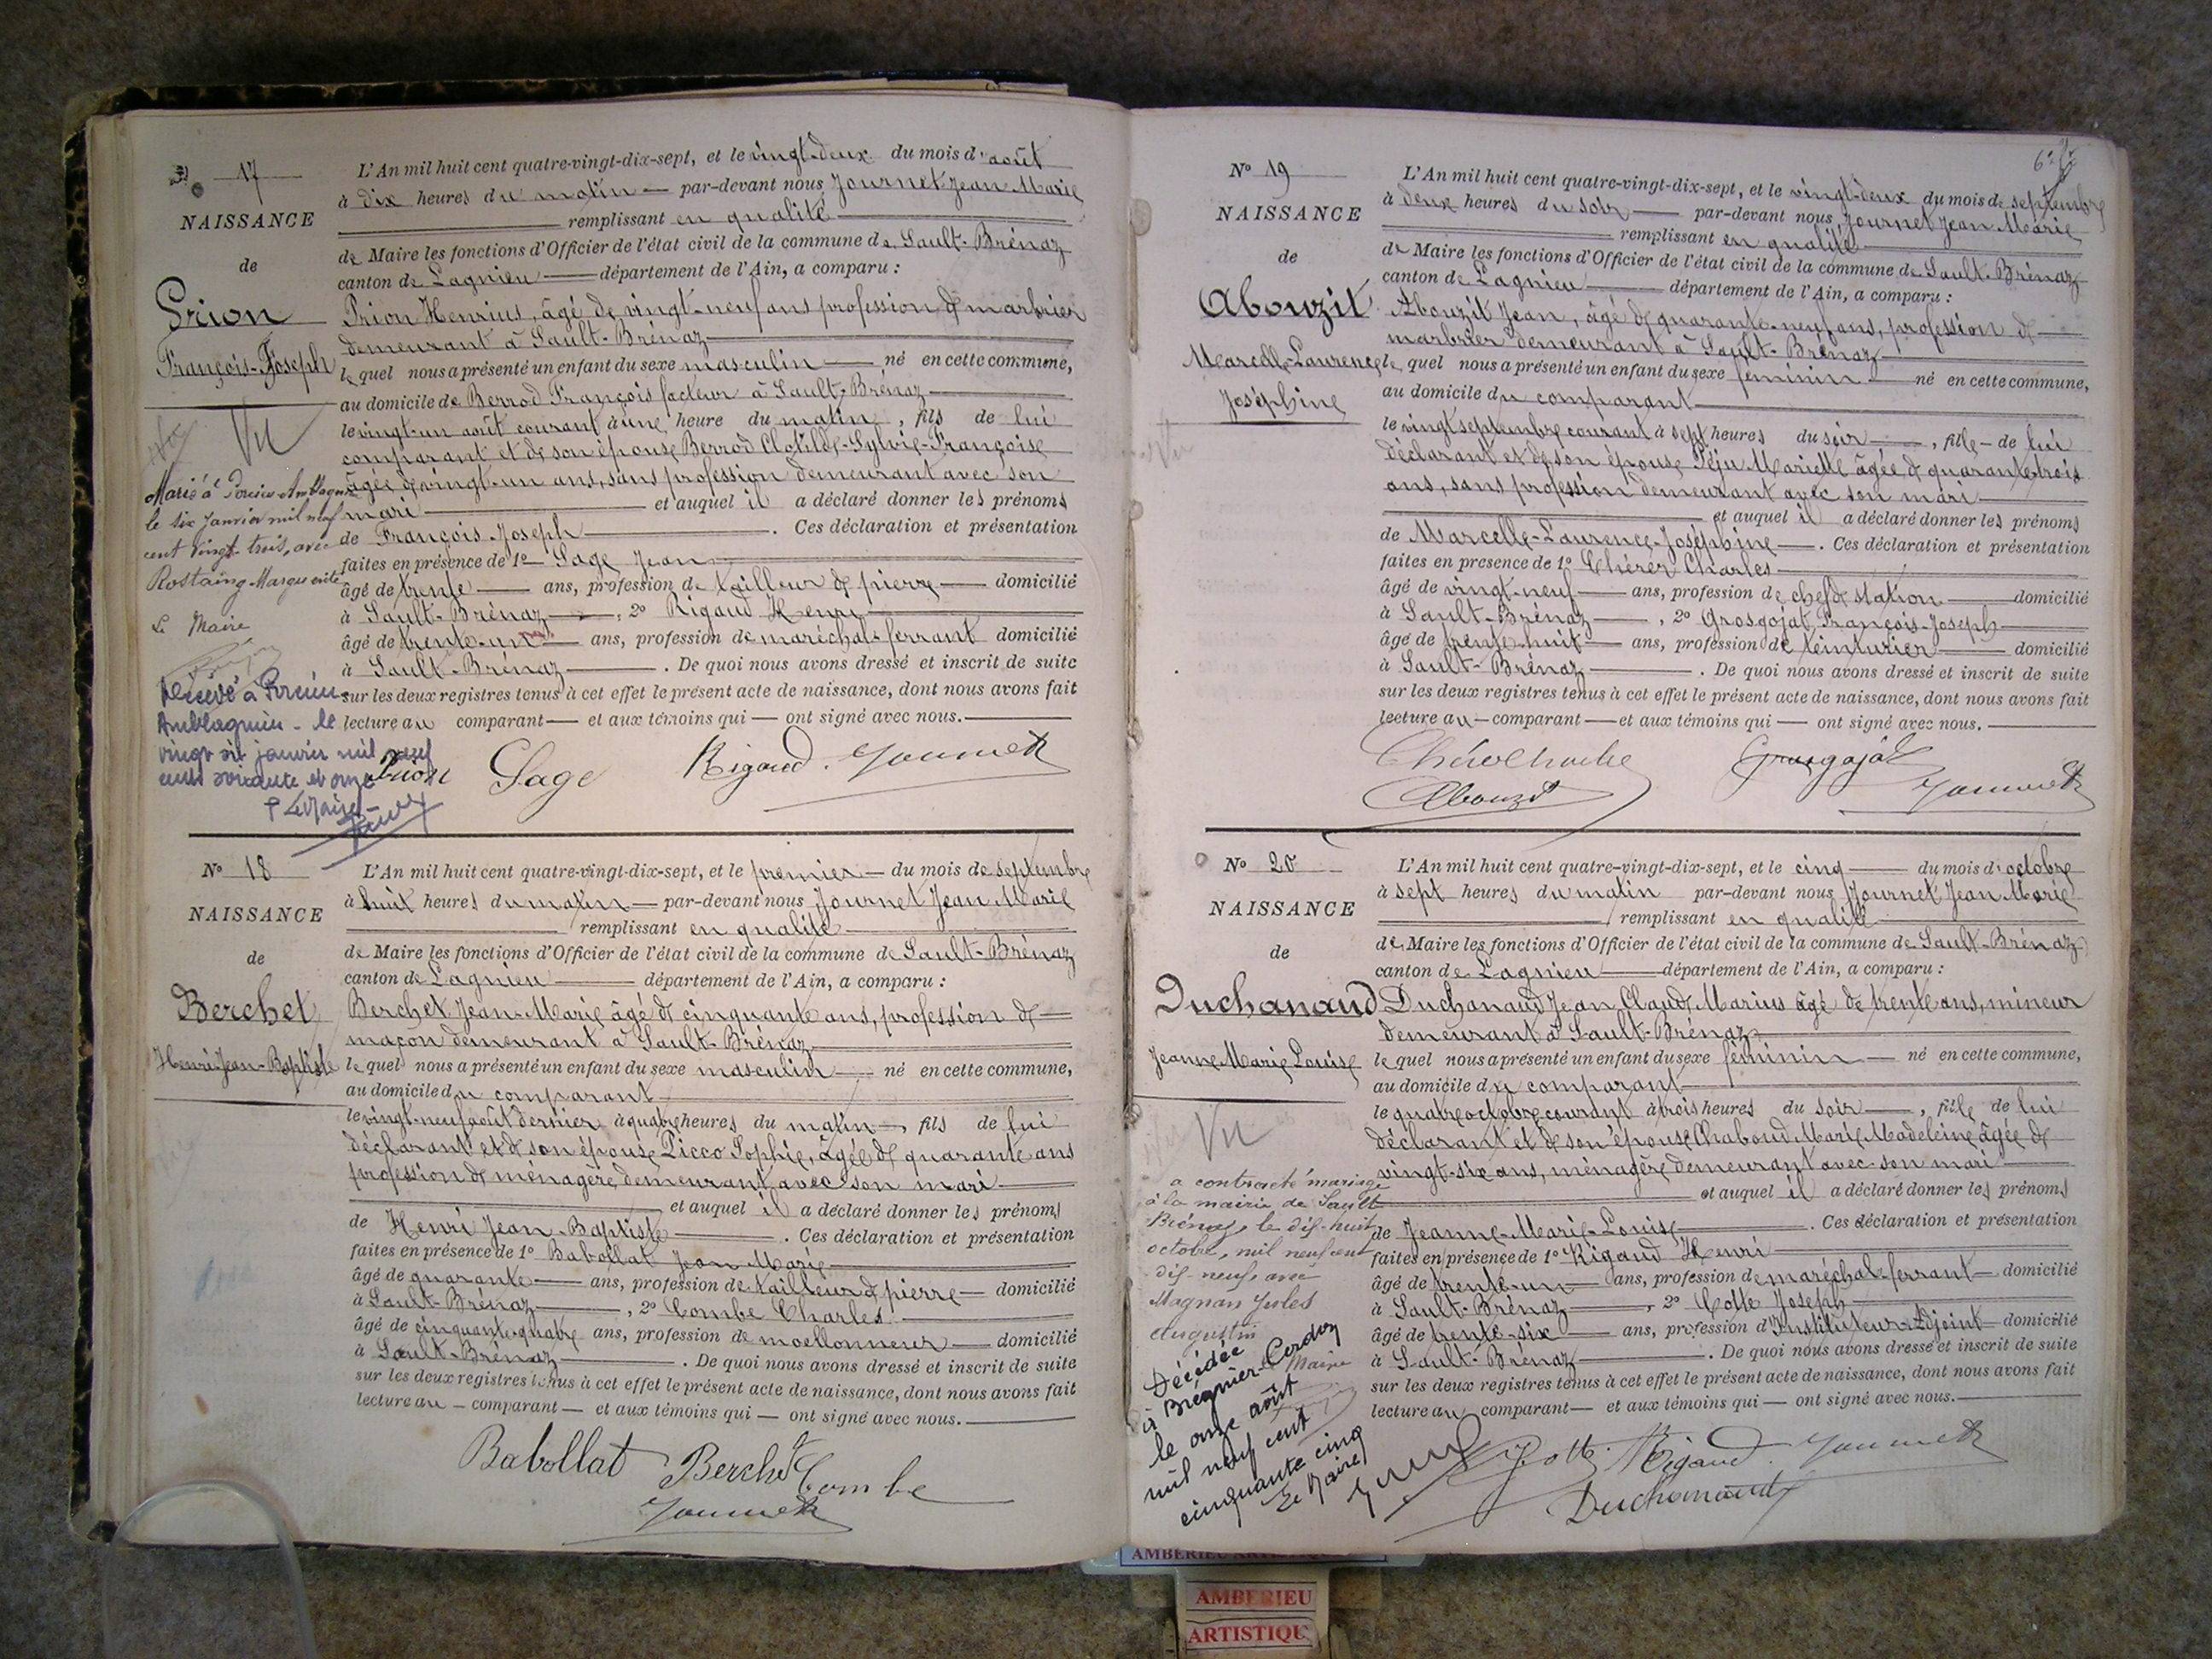 N° 17
NAISSANCE
de
Prion
François-Joseph
Vu
Marié à Porcieu-Amblagnieu
le six Janvier mil neuf
cent vingt trois, avec
Rostaing Marguerite
Le Maire
Décédé à Porcieu
Amblagnieu - le
vingt six janvier mil neuf
cent soixante et onze
L'An mil huit cent quatre-vingt-dix-sept, et le vingt-deux du mois d'août
à dix heures du matin par-devant nous Journet Jean Marie
remplissant en qualité
de Maire les fonctions d'Officier de l'état civil de la commune de Sault-Brénaz
canton de Lagnieu département de l'Ain, a comparu :
Prion Henrius, âgé de vingt-neuf ans profession de marbrier
demeurant à Sault-Brénaz
lequel nous a présenté un enfant du sexe masculin né en cette commune,
au domicile de Berrod François facteur à Sault-Brénaz
le vingt-un août courant à une heure du matin, fils de lui
comparant et de son épouse Berrod Clotilde-Sylvie-Françoise
âgée de vingt-un ans, sans profession demeurant avec son
mari et auquel il a déclaré donner les prénoms
de François-Joseph. Ces déclaration et présentation
faites en présence de 1° Sage Jean
âgé de trente ans, profession de tailleur de pierre domicilié
à Sault-Brénaz, 2° Rigaud Henri
âgé de trente-un ans, profession de maréchal-ferrant domicilié
à Sault-Brénaz. De quoi nous avons dressé et inscrit de suite
sur les deux registres tenus à cet effet le présent acte de naissance, dont nous avons fait
lecture au comparant et aux témoins qui ont signé avec nous.
Prion Sage Rigaud Journet
N° 18
NAISSANCE
de
Berchet
Henri-Jean-Baptiste
L'An mil huit cent quatre-vingt-dix-sept, et le premier du mois de septembre
à huit heures du matin par-devant nous Journet Jean Marie
remplissant en qualité
de Maire les fonctions d'Officier de l'état civil de la commune de Sault-Brénaz
canton de Lagnieu département de l'Ain, a comparu :
Berchet Jean-Marie âgé de cinquante ans, profession de
maçon demeurant à Sault-Brénaz
lequel nous a présenté un enfant du sexe masculin né en cette commune,
au domicile du comparant
le vingt-neuf août dernier à quatre heures du matin, fils de lui
déclarant et de son épouse Picco Sophie, âgée de quarante ans
profession de ménagère, demeurant avec son mari
et auquel il a déclaré donner les prénoms
de Henri Jean-Baptiste. Ces déclaration et présentation
faites en présence de 1° Babollat Jean Marie
âgé de quarante ans, profession de tailleur de pierre domicilié
à Sault-Brénaz, 2° Combe Charles
âgé de cinquante-quatre ans, profession de moellonneur domicilié
à Sault-Brénaz. De quoi nous avons dressé et inscrit de suite
sur les deux registres tenus à cet effet le présent acte de naissance, dont nous avons fait
lecture au comparant et aux témoins qui ont signé avec nous.
Babollat Berchet Combe
Journet
N° 19
NAISSANCE
de
Abouzit
Marcelle-Laurence
Joséphine
L'An mil huit cent quatre-vingt-dix-sept, et le vingt-deux du mois de septembre
à deux heures du soir par-devant nous Journet Jean Marie
remplissant en qualité
de Maire les fonctions d'Officier de l'état civil de la commune de Sault-Brénaz
canton de Lagnieu département de l'Ain, a comparu :
Abouzit Jean, âgé de quarante-neuf ans, profession de
marbrier demeurant à Sault-Brénaz
lequel nous a présenté un enfant du sexe féminin né en cette commune,
au domicile du comparant
le vingt septembre courant à sept heures du soir, fille de lui
déclarant et de son épouse Péju Mariette âgée de quarante-trois
ans, sans profession demeurant avec son mari
et auquel il a déclaré donner les prénoms
de Marcelle-Laurence-Joséphine. Ces déclaration et présentation
faites en présence de 1° Chérer Charles
âgé de vingt-neuf ans, profession de chef de station domicilié
à Sault-Brénaz, 2° Grosgojat François-Joseph
âgé de trente-huit ans, profession de teinturier domicilié
à Sault-Brénaz. De quoi nous avons dressé et inscrit de suite
sur les deux registres tenus à cet effet le présent acte de naissance, dont nous avons fait
lecture au comparant et aux témoins qui ont signé avec nous.
Grosgojat
Abouzit Journet
N° 20
NAISSANCE
de
Duchanaud
Jeanne-Marie-Louise
Vu
a contracté mariage
à la mairie de Sault
Brénaz, le dix-huit
octobre, mil neuf cent
dix-neuf, avec
Magnan Jules
Augustin
Maire
Décédée
à Brégnier-Cordon
le onze août
mil neuf cent
cinquante cinq
Le Maire
L'An mil huit cent quatre-vingt-dix-sept, et le cinq du mois d'octobre
à sept heures du matin par-devant nous Journet Jean Marie
remplissant en qualité
de Maire les fonctions d'Officier de l'état civil de la commune de Sault-Brénaz
canton de Lagnieu département de l'Ain, a comparu :
Duchanaud Jean Claude Marius âgé de trente ans, mineur
demeurant à Sault-Brénaz
lequel nous a présenté un enfant du sexe féminin né en cette commune,
au domicile du comparant
le quatre octobre courant à trois heures du soir, fille de lui
déclarant et de son épouse Chaboud Marie Madeleine âgée de
vingt-six ans, ménagère demeurant avec son mari
et auquel il a déclaré donner les prénoms
de Jeanne-Marie-Louise. Ces déclaration et présentation
faites en présence de 1° Rigaud Henri
âgé de trente-un ans, profession de maréchal-ferrant domicilié
à Sault-Brénaz, 2° Cotte Joseph
âgé de trente-six ans, profession d'Instituteur-Adjoint domicilié
à Sault-Brénaz. De quoi nous avons dressé et inscrit de suite
sur les deux registres tenus à cet effet le présent acte de naissance, dont nous avons fait
lecture au comparant et aux témoins qui ont signé avec nous.
Rigaud Journet
Duchanaud
AMBERIEU
ARTISTIQU